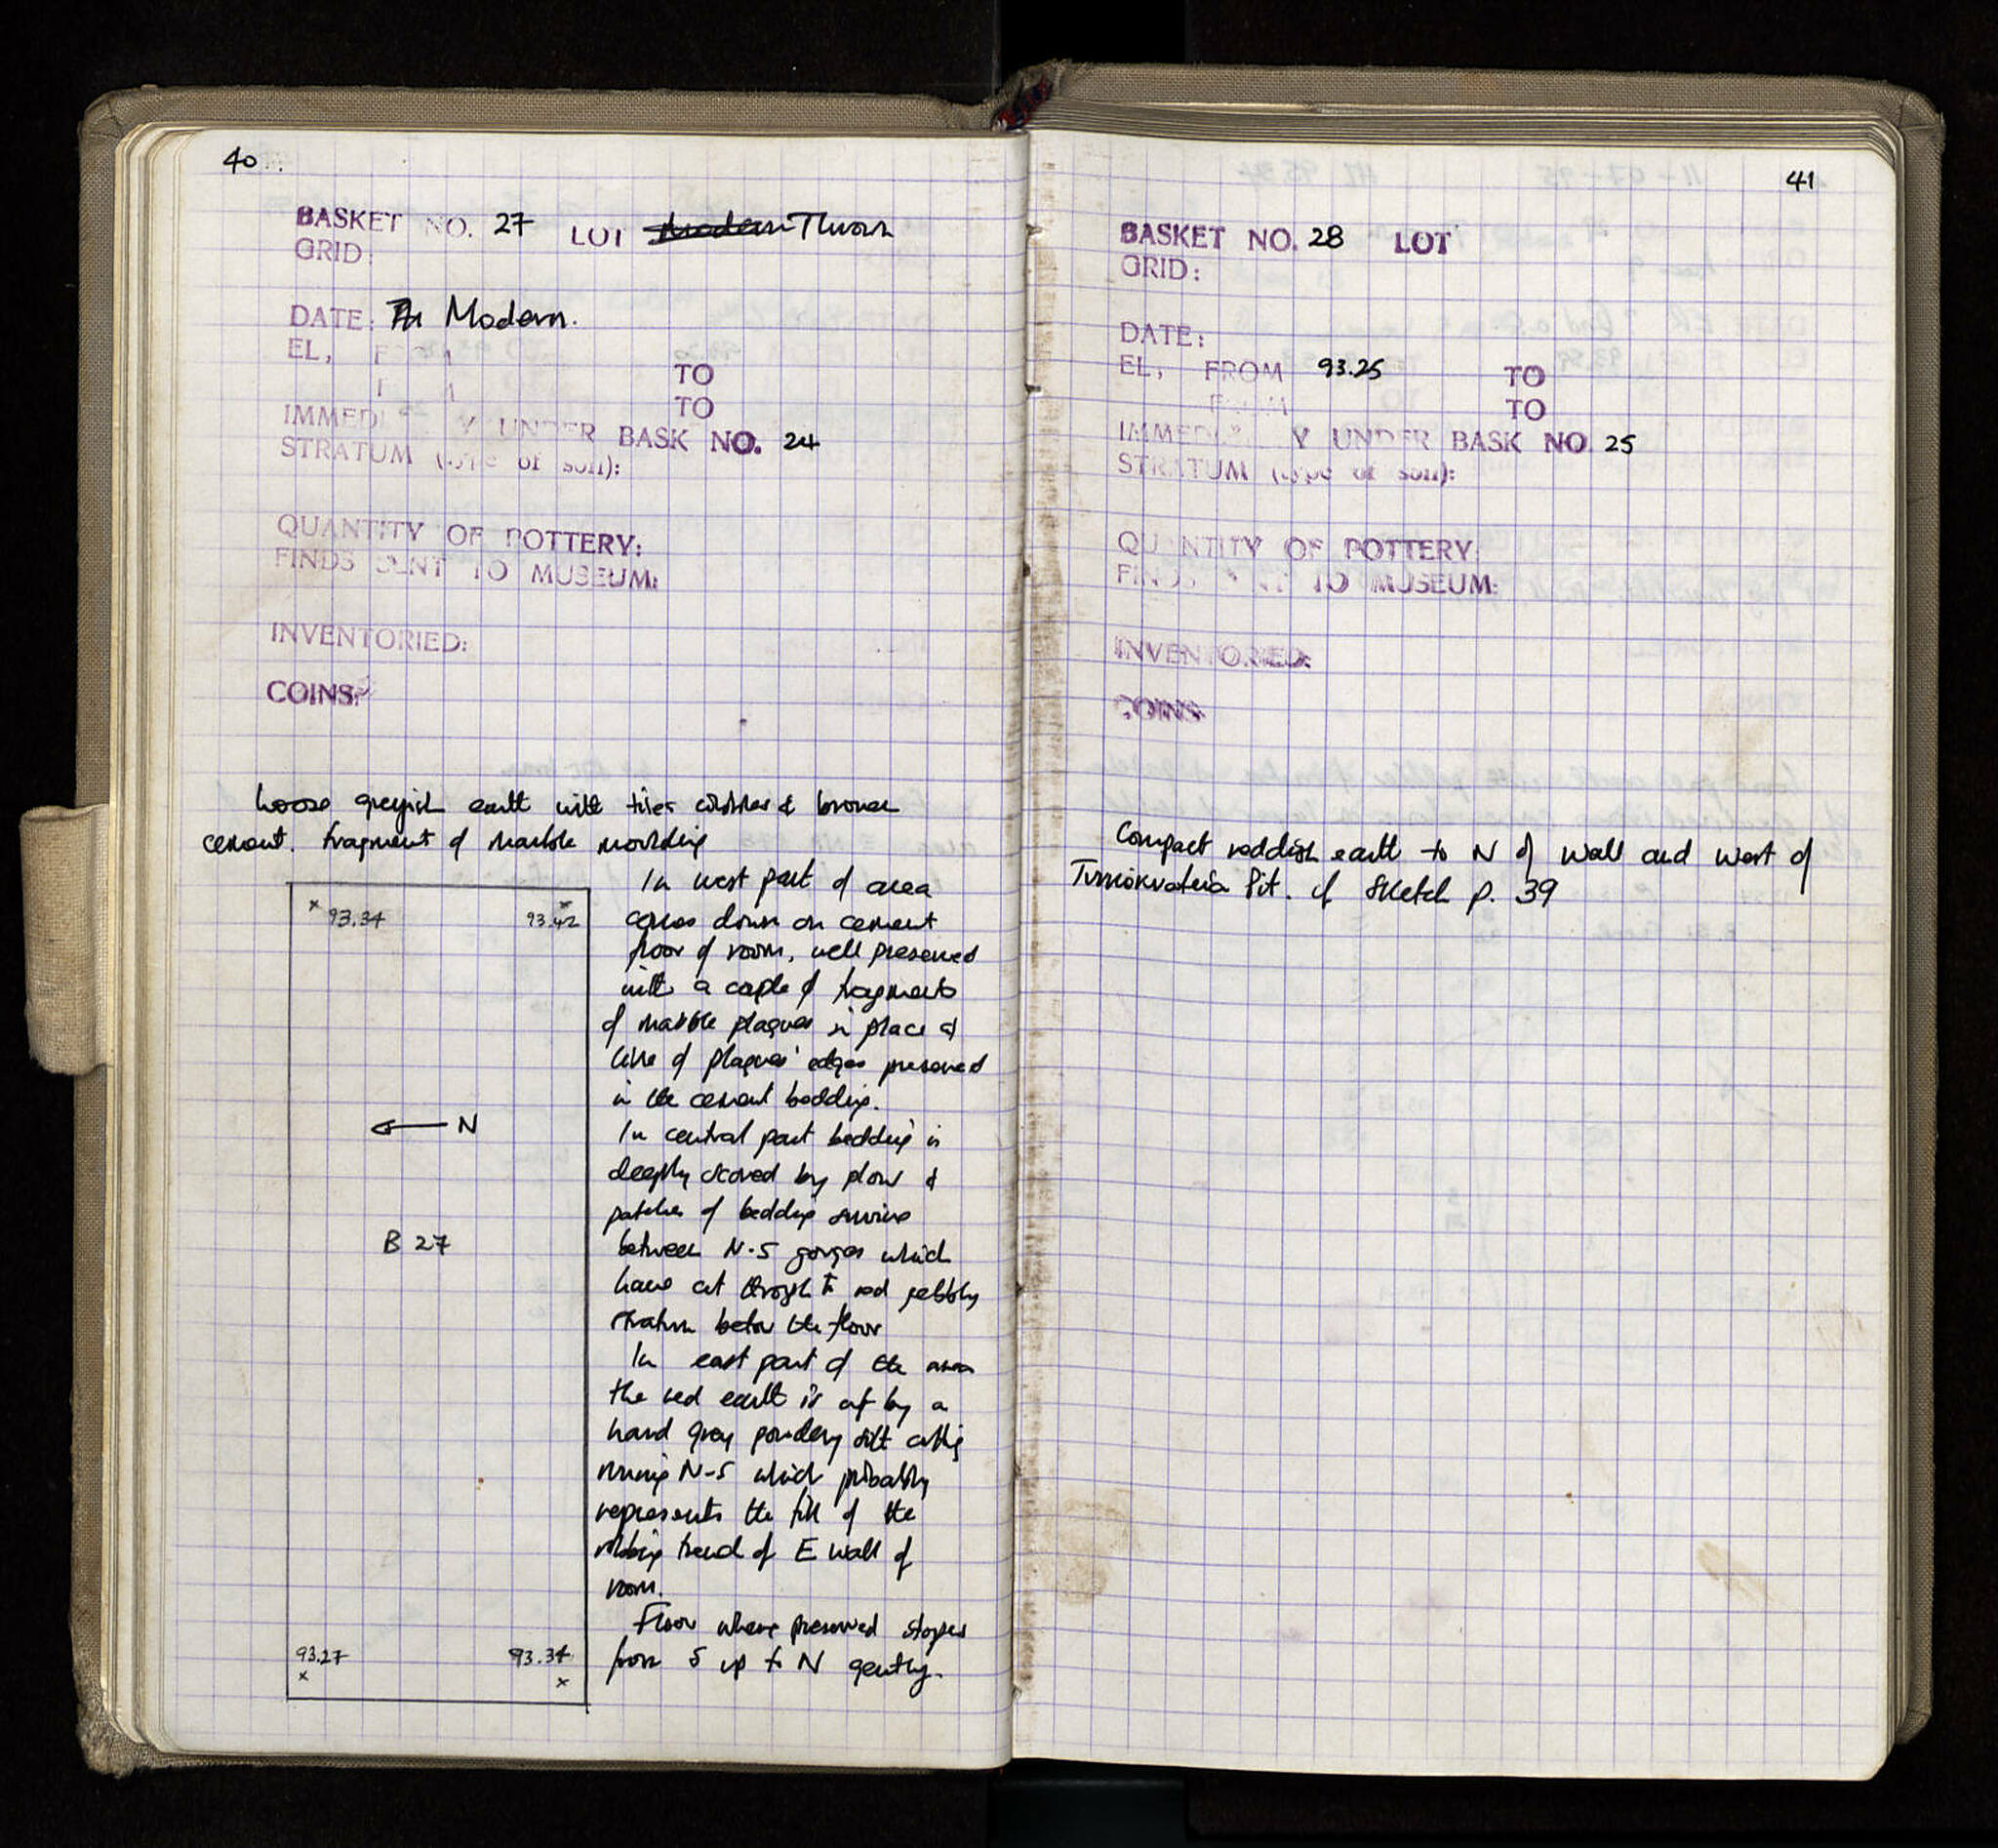 40.
BASKET NO. 27 LOT Modern Thrown
GRID:
DATE: Modern.
EL, FROM TO
TO
IMMEDIATELY UNDER BASK NO. 24
STRATUM (type of soil):
QUANTITY OF POTTERY:
FINDS SENT TO MUSEUM:
INVENTORIED:
COINS:
Loose greyish earth with tiles cobbles & broken
cement. Fragment of marble moulding
In west part of area
comes down on cement
floor of room, well preserved
with a couple of fragments
of marble plaques in place &
line of plaques' edges preserved
in the cement bedding.
In central part bedding is
deeply scored by plow &
patches of bedding survive
between N-S gouges which
have cut through to red pebbly
stratum below the floor
In east part of the area
the red earth is cut by a
hard grey powdery silt cutting
running N-S which probably
represents the fill of the
robbing trench of E wall of
room.
Floor where preserved slopes
from S up to N gently.
× 93.34
× 93.42
← N
B 27
93.27 ×
93.34 ×
41
BASKET NO. 28 LOT
GRID:
DATE:
EL, FROM 93.25 TO
FROM TO
IMMEDIATELY UNDER BASK NO. 25
STRATUM (type of soil):
QUANTITY OF POTTERY:
FINDS SENT TO MUSEUM:
INVENTORIED:
COINS:
Compact reddish earth to N of Wall and West of
Pit. cf Sketch p. 39